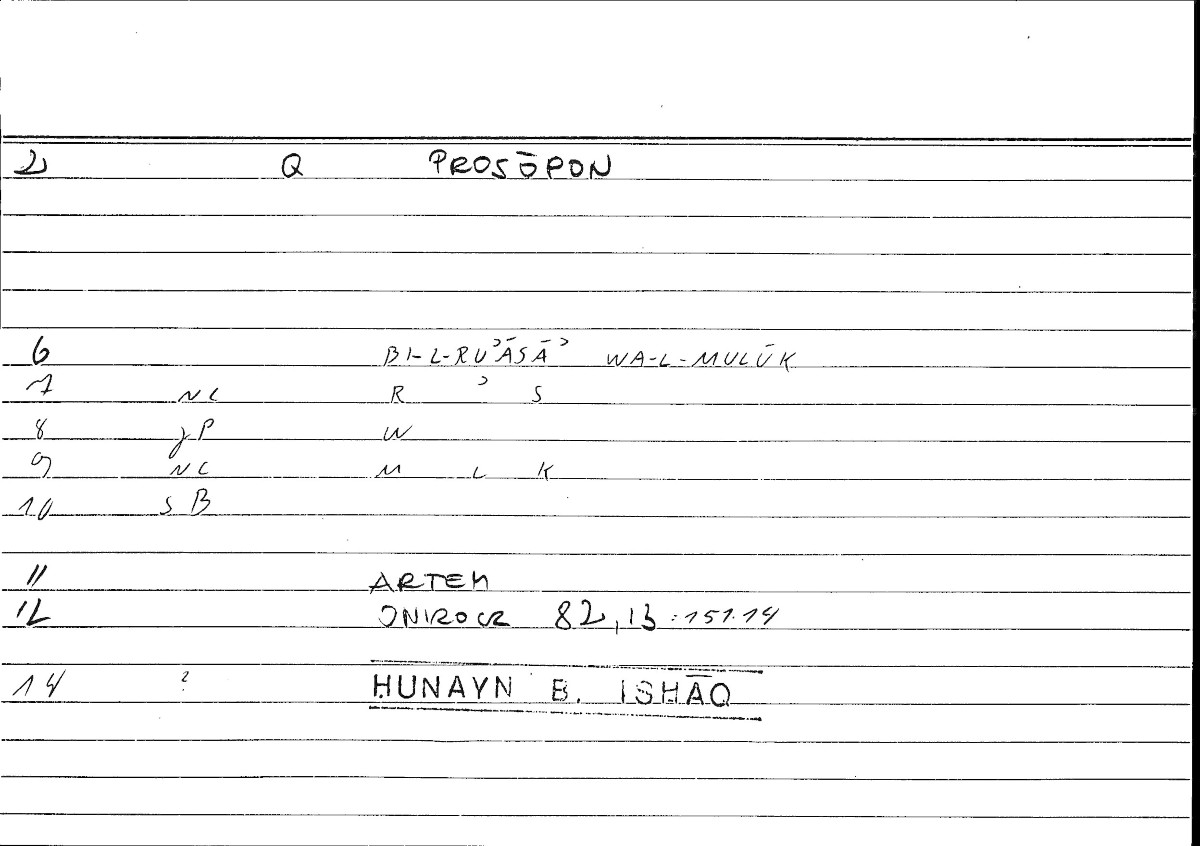 2 Q PROSŌPON
6 BI-L-RUʾĀSĀʾ WA-L-MULŪK
7 NC R ʾ S
8 jP W
9 NC M L K
10 SB
11 ARTEM
12 ONIROCR 82,13:151.14
14 ? ḤUNAYN B. ISḤĀQ